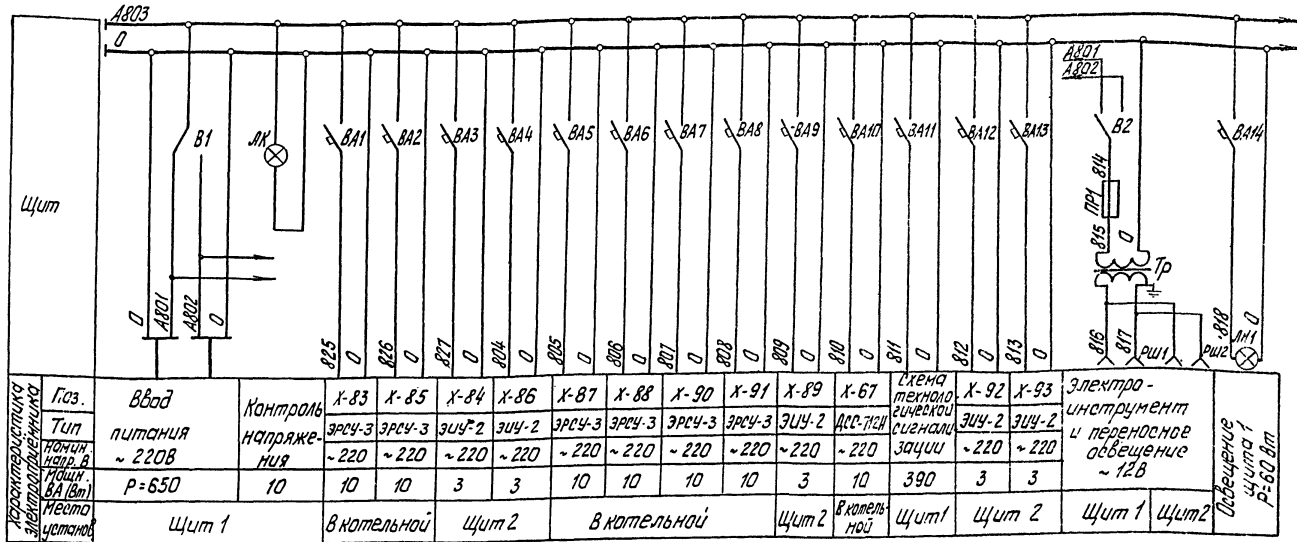 А803
0
А801
А802
В1
ЛК
ВА1
ВА2
ВА3
ВА4
ВА5
ВА6
ВА7
ВА8
ВА9
ВА10
ВА11
ВА12
ВА13
В2
ВА14
Щит
814
ПР1
815
0
Тр
0
А801
А802
0
825
0
826
0
827
0
804
0
805
0
806
0
807
0
808
0
809
0
810
0
811
0
812
0
813
0
816
817
РШ1
РШ2
818
ЛН1
0
Характеристика электроприёмника
Поз.
Ввод питания ~ 220В
Контроль напряже-ния
Х-83
Х-85
Х-84
Х-86
Х-87
Х-88
Х-90
Х-91
Х-89
Х-67
Схема техноло гической сигнали зации
Х-92
Х-93
Электро-инструмент и переносное освещение ~ 12В
Освещение щита 1 Р=60 Вт
Тип
ЭРСУ-3
ЭРСУ-3
ЭИУ-2
ЭИУ-2
ЭРСУ-3
ЭРСУ-3
ЭРСУ-3
ЭРСУ-3
ЭИУ-2
ЭИУ-2
ЭИУ-2
Номин напр. В
~ 220
~ 220
~ 220
~ 220
~ 220
~ 220
~ 220
~ 220
~ 220
~ 220
~ 220
~ 220
Мощн. ВА (Вт)
Р=650
10
10
10
3
3
10
10
10
10
3
10
390
3
3
Место установ
Щит 1
В котельной
Щит 2
В котельной
Щит 2
В котель-ной
Щит1
Щит 2
Щит 1
Щит2